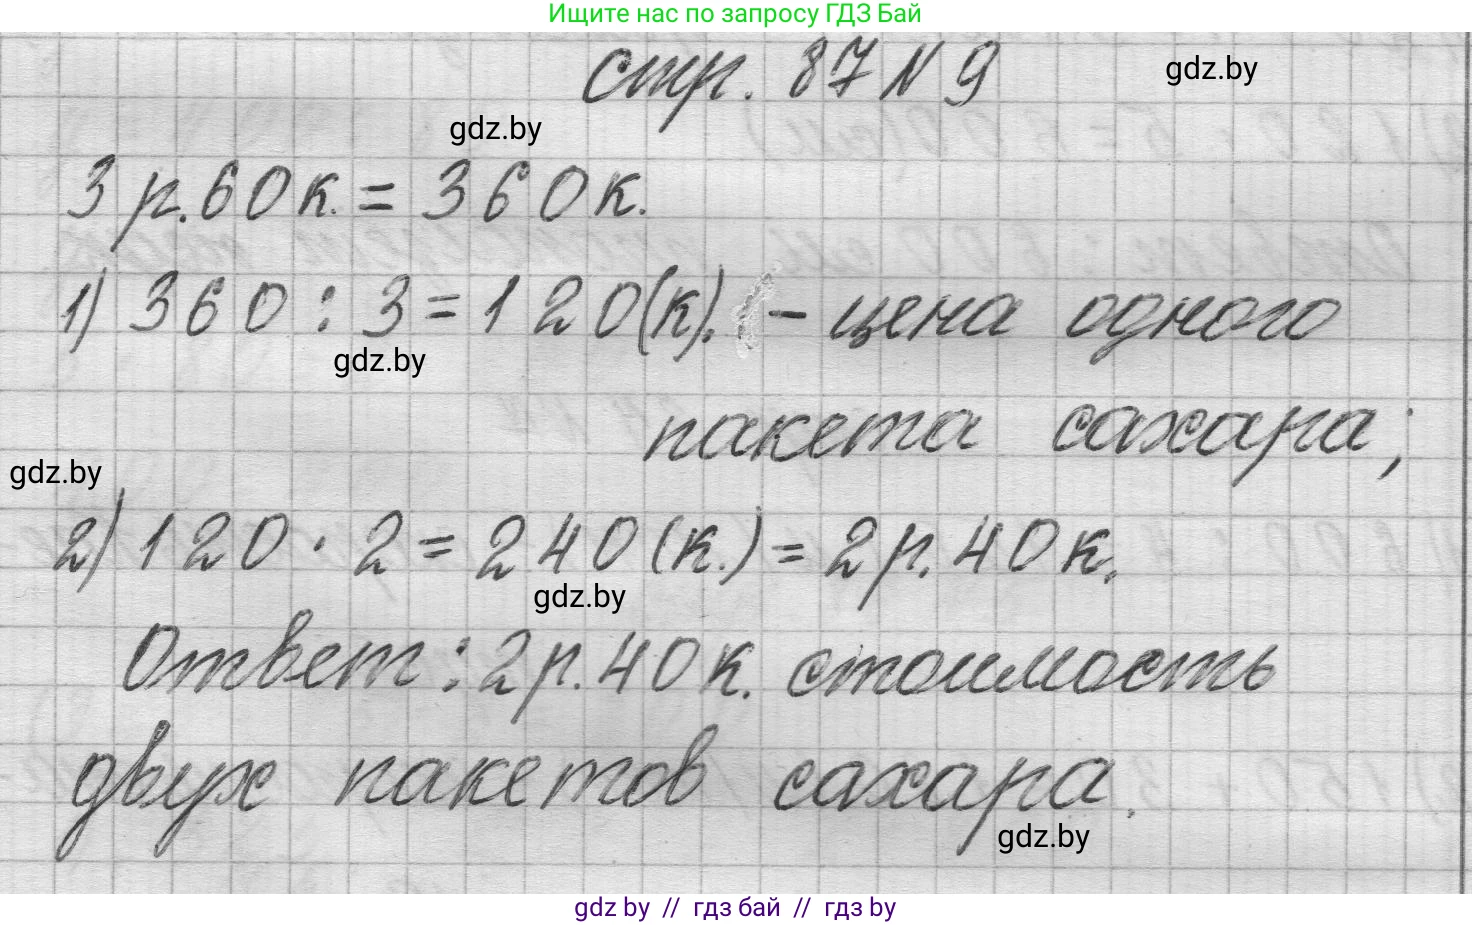 Ищите нас по запросу ГДЗ Бай
стр. 87 N 9
gdz.by
gdz.by
3 р. 60 к. = 360 к.
1) 360 : 3 = 120 (к). – цена одного
gdz.by
пакета сахара;
gdz.by
2) 120 · 2 = 240 (к.) = 2 р. 40 к.
gdz.by
Ответ: 2 р. 40 к. стоимость
двух пакетов сахара.
gdz.by
gdz by // гдз бай // гдз by